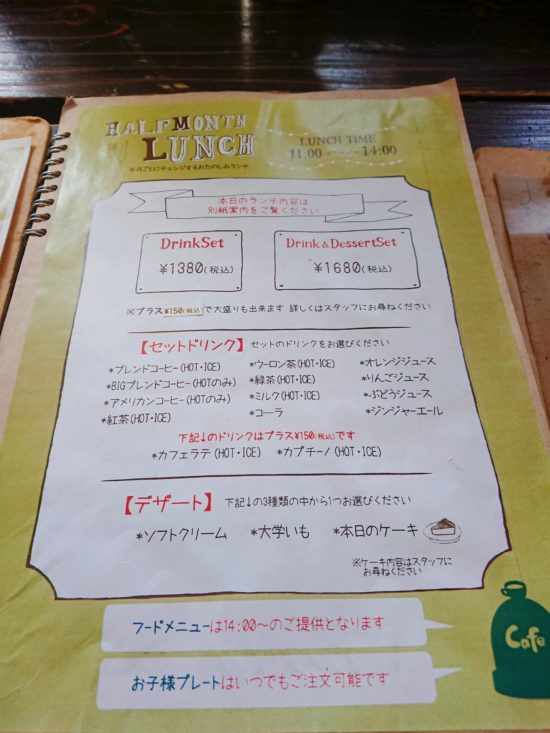 HALF MONTH
LUNCH
半月ごとにチェンジするおたのしみランチ
LUNCH TIME
11:00 〜 14:00
本日のランチ内容は
別紙案内をご覧ください
DrinkSet
¥1380(税込)
Drink&DessertSet
¥1680(税込)
※プラス¥150(税込)で大盛りも出来ます 詳しくはスタッフにお尋ねください
【セットドリンク】セットのドリンクをお選びください
*ブレンドコーヒー(HOT・ICE)
*BIGブレンドコーヒー(HOTのみ)
*アメリカンコーヒー(HOTのみ)
*紅茶(HOT・ICE)
*ウーロン茶(HOT・ICE)
*緑茶(HOT・ICE)
*ミルク(HOT・ICE)
*コーラ
*オレンジジュース
*りんごジュース
*ぶどうジュース
*ジンジャーエール
下記↓のドリンクはプラス¥150(税込)です
*カフェラテ(HOT・ICE) *カプチーノ(HOT・ICE)
【デザート】下記↓の3種類の中から1つお選びください
*ソフトクリーム *大学いも *本日のケーキ
※ケーキ内容はスタッフに
お尋ねください
フードメニューは14:00〜のご提供となります
お子様プレートはいつでもご注文可能です
Cafe